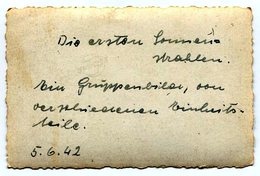 Die ersten Sonnen-
strahlen.
Ein Gruppenbild, von
verschiedenen Einheits-
teile.
5.6.42